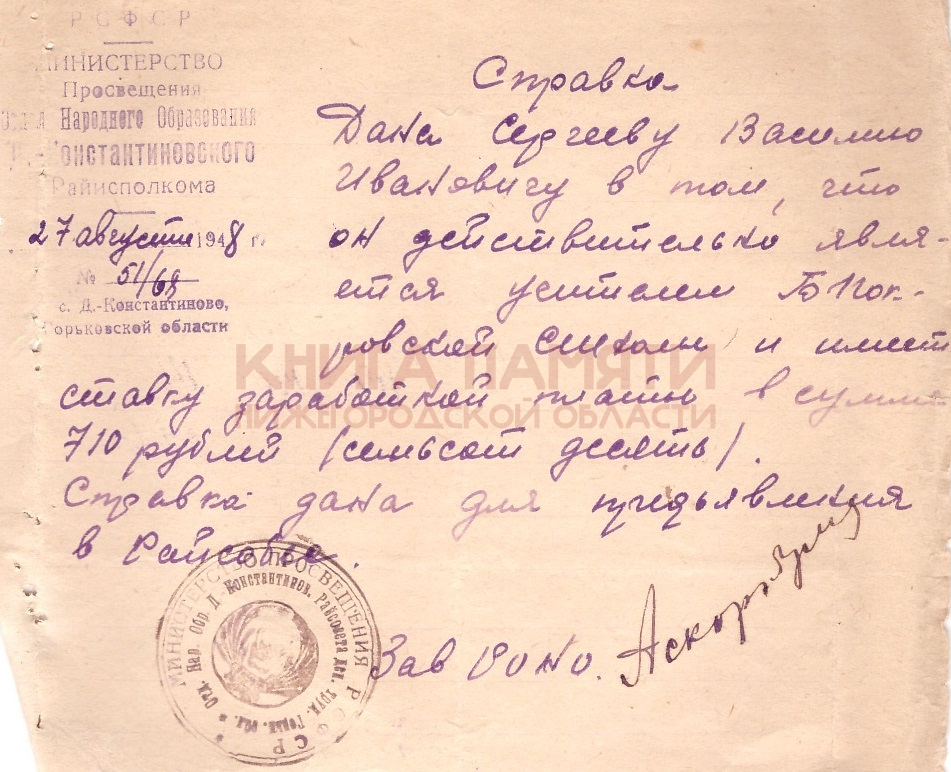 РСФСР
МИНИСТЕРСТВО
Просвещения
Отдел Народного Образования
Д.-Константиновского
Райисполкома
27 августа 1948 г.
№ 51/68
с. Д.-Константиново,
Горьковской области
Справка
Дана Сергееву Василию
Ивановичу в том, что
он действительно явля-
ется учителем Б Пок-
ровской школы и имеет
ставку заработной платы в сумме
710 рублей (семьсот десять).
Справка дана для предъявления
в Райсобес.
Зав Роно.
КНИГА ПАМЯТИ
НИЖЕГОРОДСКОЙ ОБЛАСТИ
МИНИСТЕРСТВО ПРОСВЕЩЕНИЯ РСФСР
Отд. Нар. Обр. Д. Константинов. Райсовета деп. труд. Горьк. обл.